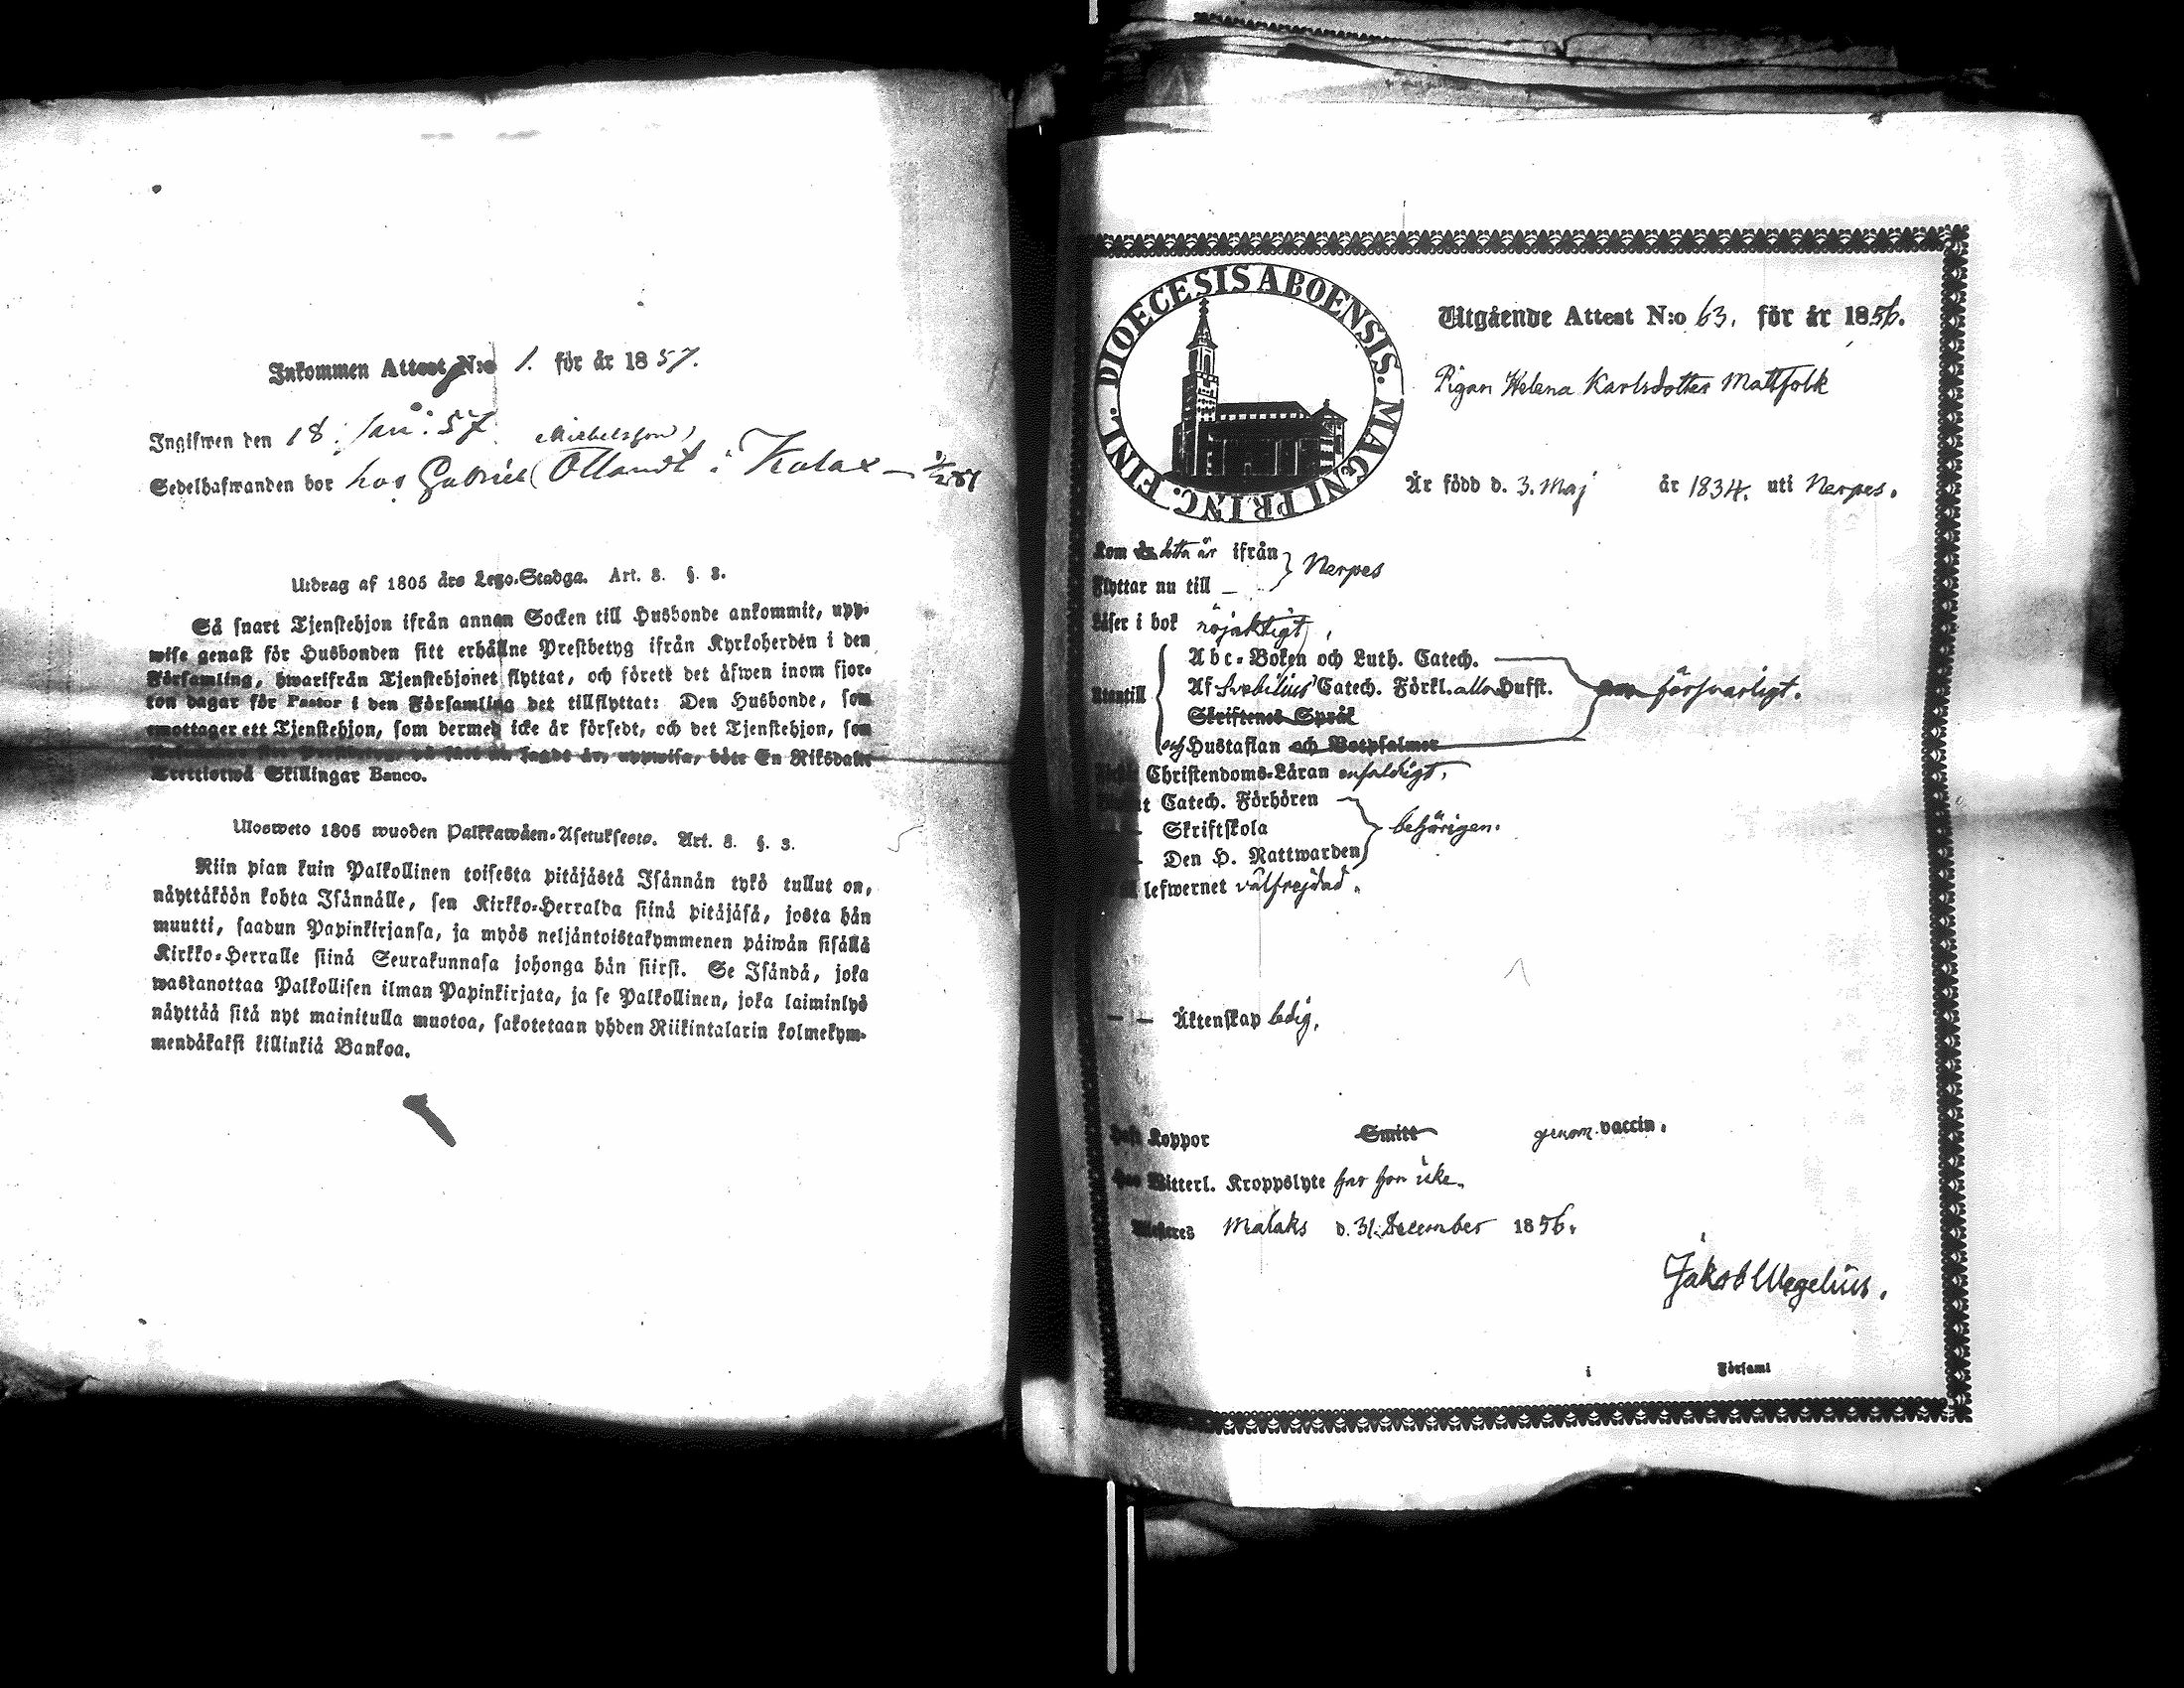 Inkommen Attest N:o 1. för år 1857.
Ingifwen den 18. Jan: 57.
Michelsson
Sedelhafwanden bor hos Gabriel Ollandt i Kalax
Utdrag af 1805 års Lego-Stadga. Art. 8. §. 3.
Så snart Tjenstehjon ifrån annan Socken till Husbonde ankommit, upp-
wise genast för Husbonden sitt erhållne Prestbetyg ifrån Kyrkoherden i den
Församling, hwarifrån Tjenstehjonet flyttat, och förete det äfwen inom fjor-
ton dagar för Pastor i den Församling det tillflyttat: Den Husbonde, som
emottager ett Tjenstehjon, som dermed icke är försedt, och det Tjenstehjon, som
sagdt är, uppwisa, böte En Riksdaler
Trettiotwå Skillingar Banco.
Ulosweto 1805 wuoden Palkkawäen-Asetuksesta. Art. 8. §. 3.
Niin pian kuin Palkollinen toisesta pitäjästä Isännän tykö tullut on,
näyttäköön kohta Isännälle, sen Kirkko-Herralda siinä pitäjäsä, josta hän
muutti, saadun Papinkirjansa, ja myös neljäntoistakymmenen päiwän sisällä
Kirkko-Herralle siinä Seurakunnasa johonga hän siirsi. Se Isändä, joka
wastanottaa Palkollisen ilman Papinkirjata, ja se Palkollinen, joka laiminlyö
näyttää sitä nyt mainitulla muotoa, sakotetaan yhden Riikintalarin kolmekym-
mendäkaksi killinkiä Bankoa.
DIOECESIS ABOENSIS. MAGNI PRINC. FINL.
Utgående Attest N:o 63. för år 1856.
Pigan Helena Karlsdotter Mattfolk
Är född d. 3. Maj år 1834. uti Nerpes.
Kom detta år ifrån
Flyttar nu till Nerpes
Läser i bok nöjaktigt,
Abc-Boken och Luth. Catech.
Utantill Af Svebilius Catech. Förkl. alla Hufst. försvarligt.
Skriftenes Språk
och Hustaflan och Botpsalmer
Christendoms-Läran enfaldigt,
Catech. Förhören
Skriftskola behörigen.
Den H. Nattwarden
lefwernet välfrejdad.
Äktenskap ledig.
Haft Koppor Smitt genom vaccin.
Witterl. Kroppslyte har hon icke.
Attesteres Malaks d. 31. December 1856.
Jakob Wegelius.
i Församl